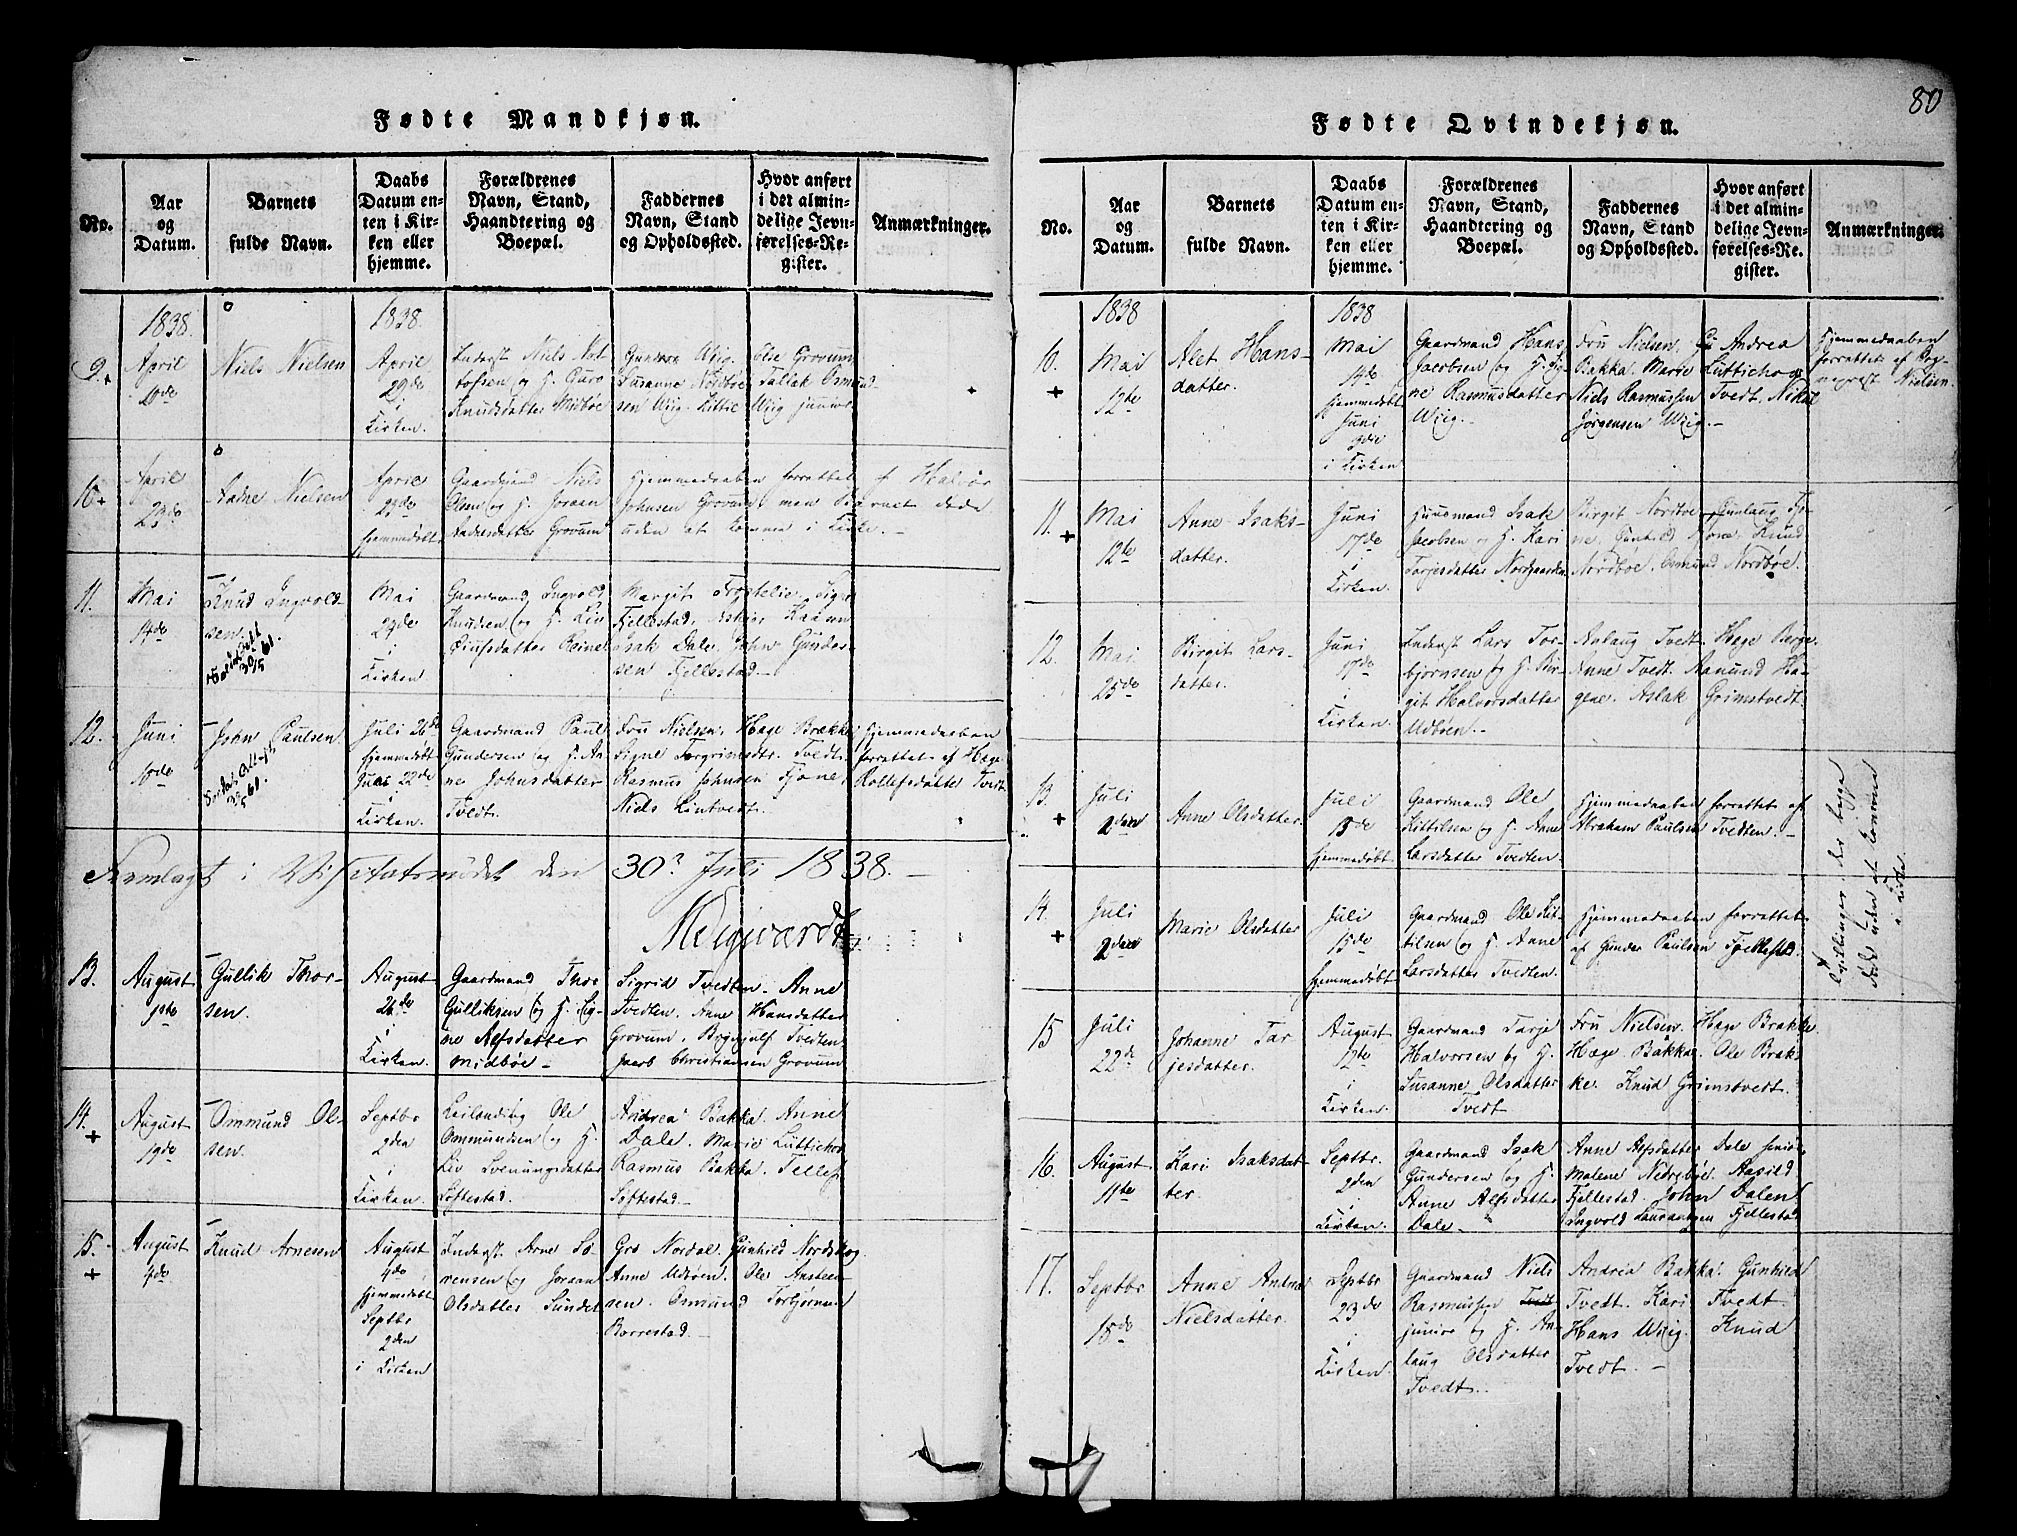 80
Fødte Mandkjøn.
No.
Aar
og
Datum.
Barnets
fulde Navn.
Daabs
Datum en-
ten i Kir-
ken eller
hjemme.
Forældrenes
Navn, Stand,
Haandtering og
Boepæl.
Faddernes
Navn, Stand
og Opholdssted.
Hvor anført
i det almin-
delige Jevn-
førelses-Re-
gister.
Anmærkninger.
9.
1838.
April
Niels Nielsen
1838.
April
29de
i
Kirken.
Inderst Niels
Knudsdatter Midbøe
Gunder Wiig. Else Grovum
Susanne Nordbøe Tallak Osmund
sen Wiig. Kittil Wiig junior
10
April
23de
Aadne Nielsen
April
23de
hjemmedøbt
Gaardmand Niels
Olsen og H. Joraan
Andersdatter Grovum
Hjemmedaaben forrettet af Halvor
Johnsen Grovum men Barnet døde
uden at komme i Kirke. –
11.
Mai
14de
Knud Ingvold-
sen.
30/5 61.
Mai
27de
i
Kirken
Gaardmand Ingvold
Knudsen og H. Liv
Margit
Fjellestad.
Isak Dale. John Gunder-
sen Fjellestad. –
12.
Juni
John Paulsen.
Juli 26de
hjemmedøbt
Juni 22de
i
Kirken.
Gaardmand Paul
Gundersen og H. An-
ne Johnsdatter
Tvedt.
Fru Nielsen. Hæge Brække
Signe Torgrimsdtr. Tvedt.
Rasmus Johnsen Tjøne.
Niels Lintvedt.
Hjemmedaaben
forrettet af Hæge
Rollefsdatter Tvedt
Fremlagt i Visitatsmødet den 30? Juli 1838. –
13.
August
1ste
Gullik Thor-
sen.
August
26de
i
Kirken.
Gaardmand Thor
Gulliksen og H. Sig-
ne Alfsdatter
Midbøe –
Sigrid Tvedten. Anne
Tvedten. Anne Hansdatter
Grovum. Brynjulf Tvedten
Jacob Christiansen Grovum
14.
August
19de
Ommund Ol-
sen.
Septbr
2den
i
Kirken.
Leilending Ole
Ommundsen og H.
Liv Svenungsdatter
Søftestad.
Andrea Bakka. Anne
Dale. Marie Lütticho
Rasmus Bakka. Tellef
Søftestad. –
15.
August
4de
Knud Arnesen
August
4de
hjemmedøbt
Septbr
2den
i Kirken
Inderst Arne Sø-
rensen og Joraan
Olsdatter Sundet
Gro Nordal. Gunhild Nordskog
Anne Udbøen. Ole Ansteen-
sen. Osmund Torbjønnen
Borrestad. –
Fødte Qvindekjøn.
No.
Aar
og
Datum.
Barnets
fulde Navn.
Daabs
Datum en-
ten i Kir-
ken eller
hjemme.
Forældrenes
Navn, Stand,
Haandtering og
Boepæl.
Faddernes
Navn, Stand
og Opholdssted.
Hvor anført
i det almin-
delige Jevn-
førelses-Re-
gister.
Anmærkninger.
10.
1838
Mai
12te
Alet Hans-
datter.
1838
Mai
14de
hjemmedøbt
Juni
i Kirken
Gaardmand Hans
Jacobsen og H. Sig-
ne Rasmusdatter
Wiig. –
Fru Nielsen. Andrea
Bakka. Marie Lütticho og
Niels Rasmussen Tvedt. Nikol
Jørgensen Wiig. –
Hjemmedaaben
forrettet af
Nielsen
11.
Mai
12te
Anne Isaks-
datter.
Juni
17de
i
Kirken.
Huusmand Isak
Jacobsen og H. Kari
Tarjesdatter Nordgaarden
Birgit Nordbøe. Gunlaug Tjø-
ne. Gunhild Tjøne. Knud
Nordbøe. Osmund Nordbøe.
12.
Mai
25de
Birgit Lars-
datter.
Juni
17de
i
Kirken.
Inderst Lars Tor-
bjørnsen og H. Bir-
git Halvorsdatter
Udbøen. –
Anlaug Tvedt. Hæge Berge
Anne Tvedt. Aanund Ha-
gene. Aslak Grimstvedt.
13.
Juli
2den
Anne Olsdatter.
Juli
15de
hjemmedøbt
Gaardmand Ole
Kittilsen og H. Anne
Larsdatter Tvedten.
Hjemmedaaben forrettet af
Abraham Paulsen Tvedten. –
14.
Juli
2den
Marie Olsdatter
Juli
15de
hjemmedøbt
Gaardmand Ole Kit-
tilsen og H. Anne
Larsdatter Tvedten
Hjemmedaaben forrettet
af Gunder Paulsen Fjellestad.
Tvillinger, der begge
døde uden at komme
i Kirke.
15
Juli
22de
Johanne Tar
jesdatter.
August
12te
i
Kirken.
Gaardmand Tarje
Halvorsen og H.
Susanne Olsdatter
Tvedt
Fru Nielsen. Hæge Brække.
Hæge Bakka. Ole Bræk-
ke. Knud Grimstvedt.
16.
August
11te
Kari Isaksdat-
ter.
Septbr.
2den
i
Kirken.
Gaardmand Isak
Gundersen og H.
Anne Alfsdatter
Dale. –
Anne Alfsdatter Dale senior
Malene Nedrebøe. Aasild
Fjellestad. John Dalen
Ingvold Laurantzen Fjellestad
17.
Septbr
15de
Anne Andrea
Nielsdatter.
Septbr
23de
i
Kirken.
Gaardmand Niels
Rasmussen Tvedt
junior og H. An-
laug Olsdatter
Tvedt.
Andrea Bakka. Gunhild
Tvedt. Kari Tvedt.
Hans Wiig. Knud
Tvedt. –